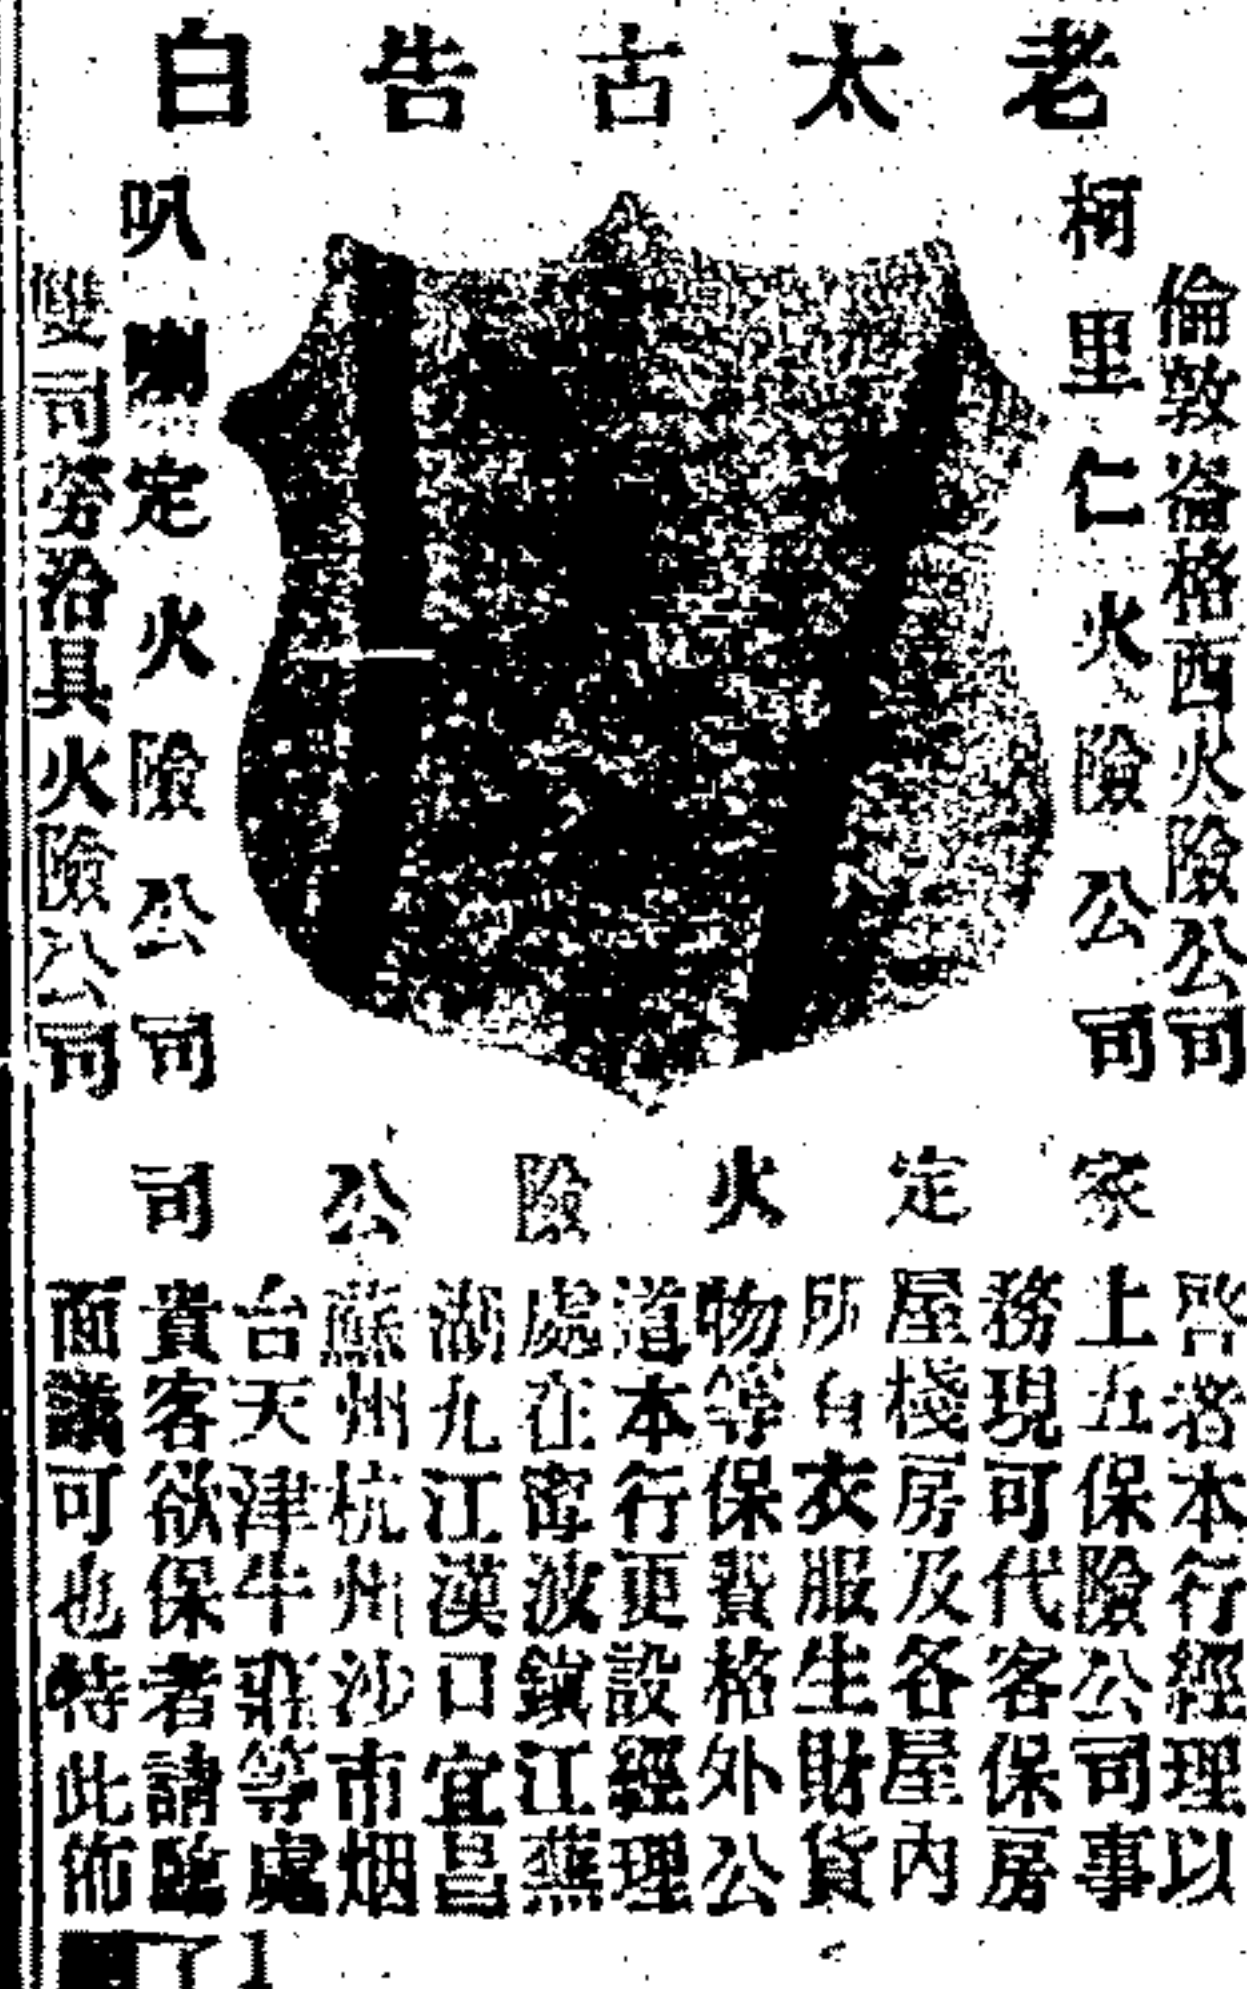 老太古告白
倫敦崙格西火險公司
柯里仁火險公司
叭喇定火險公司
雙司勞治具火險公司
家定火險公司
啓者本行經理以
上五保險公司事
務現可代客保房
屋棧房及各屋內
所有衣服生財貨
物等保費格外公
道本行更設經理
處在寗波鎭江蕪
湖九江漢口宜昌
蘇州杭州沙市烟
台天津牛莊等處
貴客欲保者請臨
面議可也特此佈